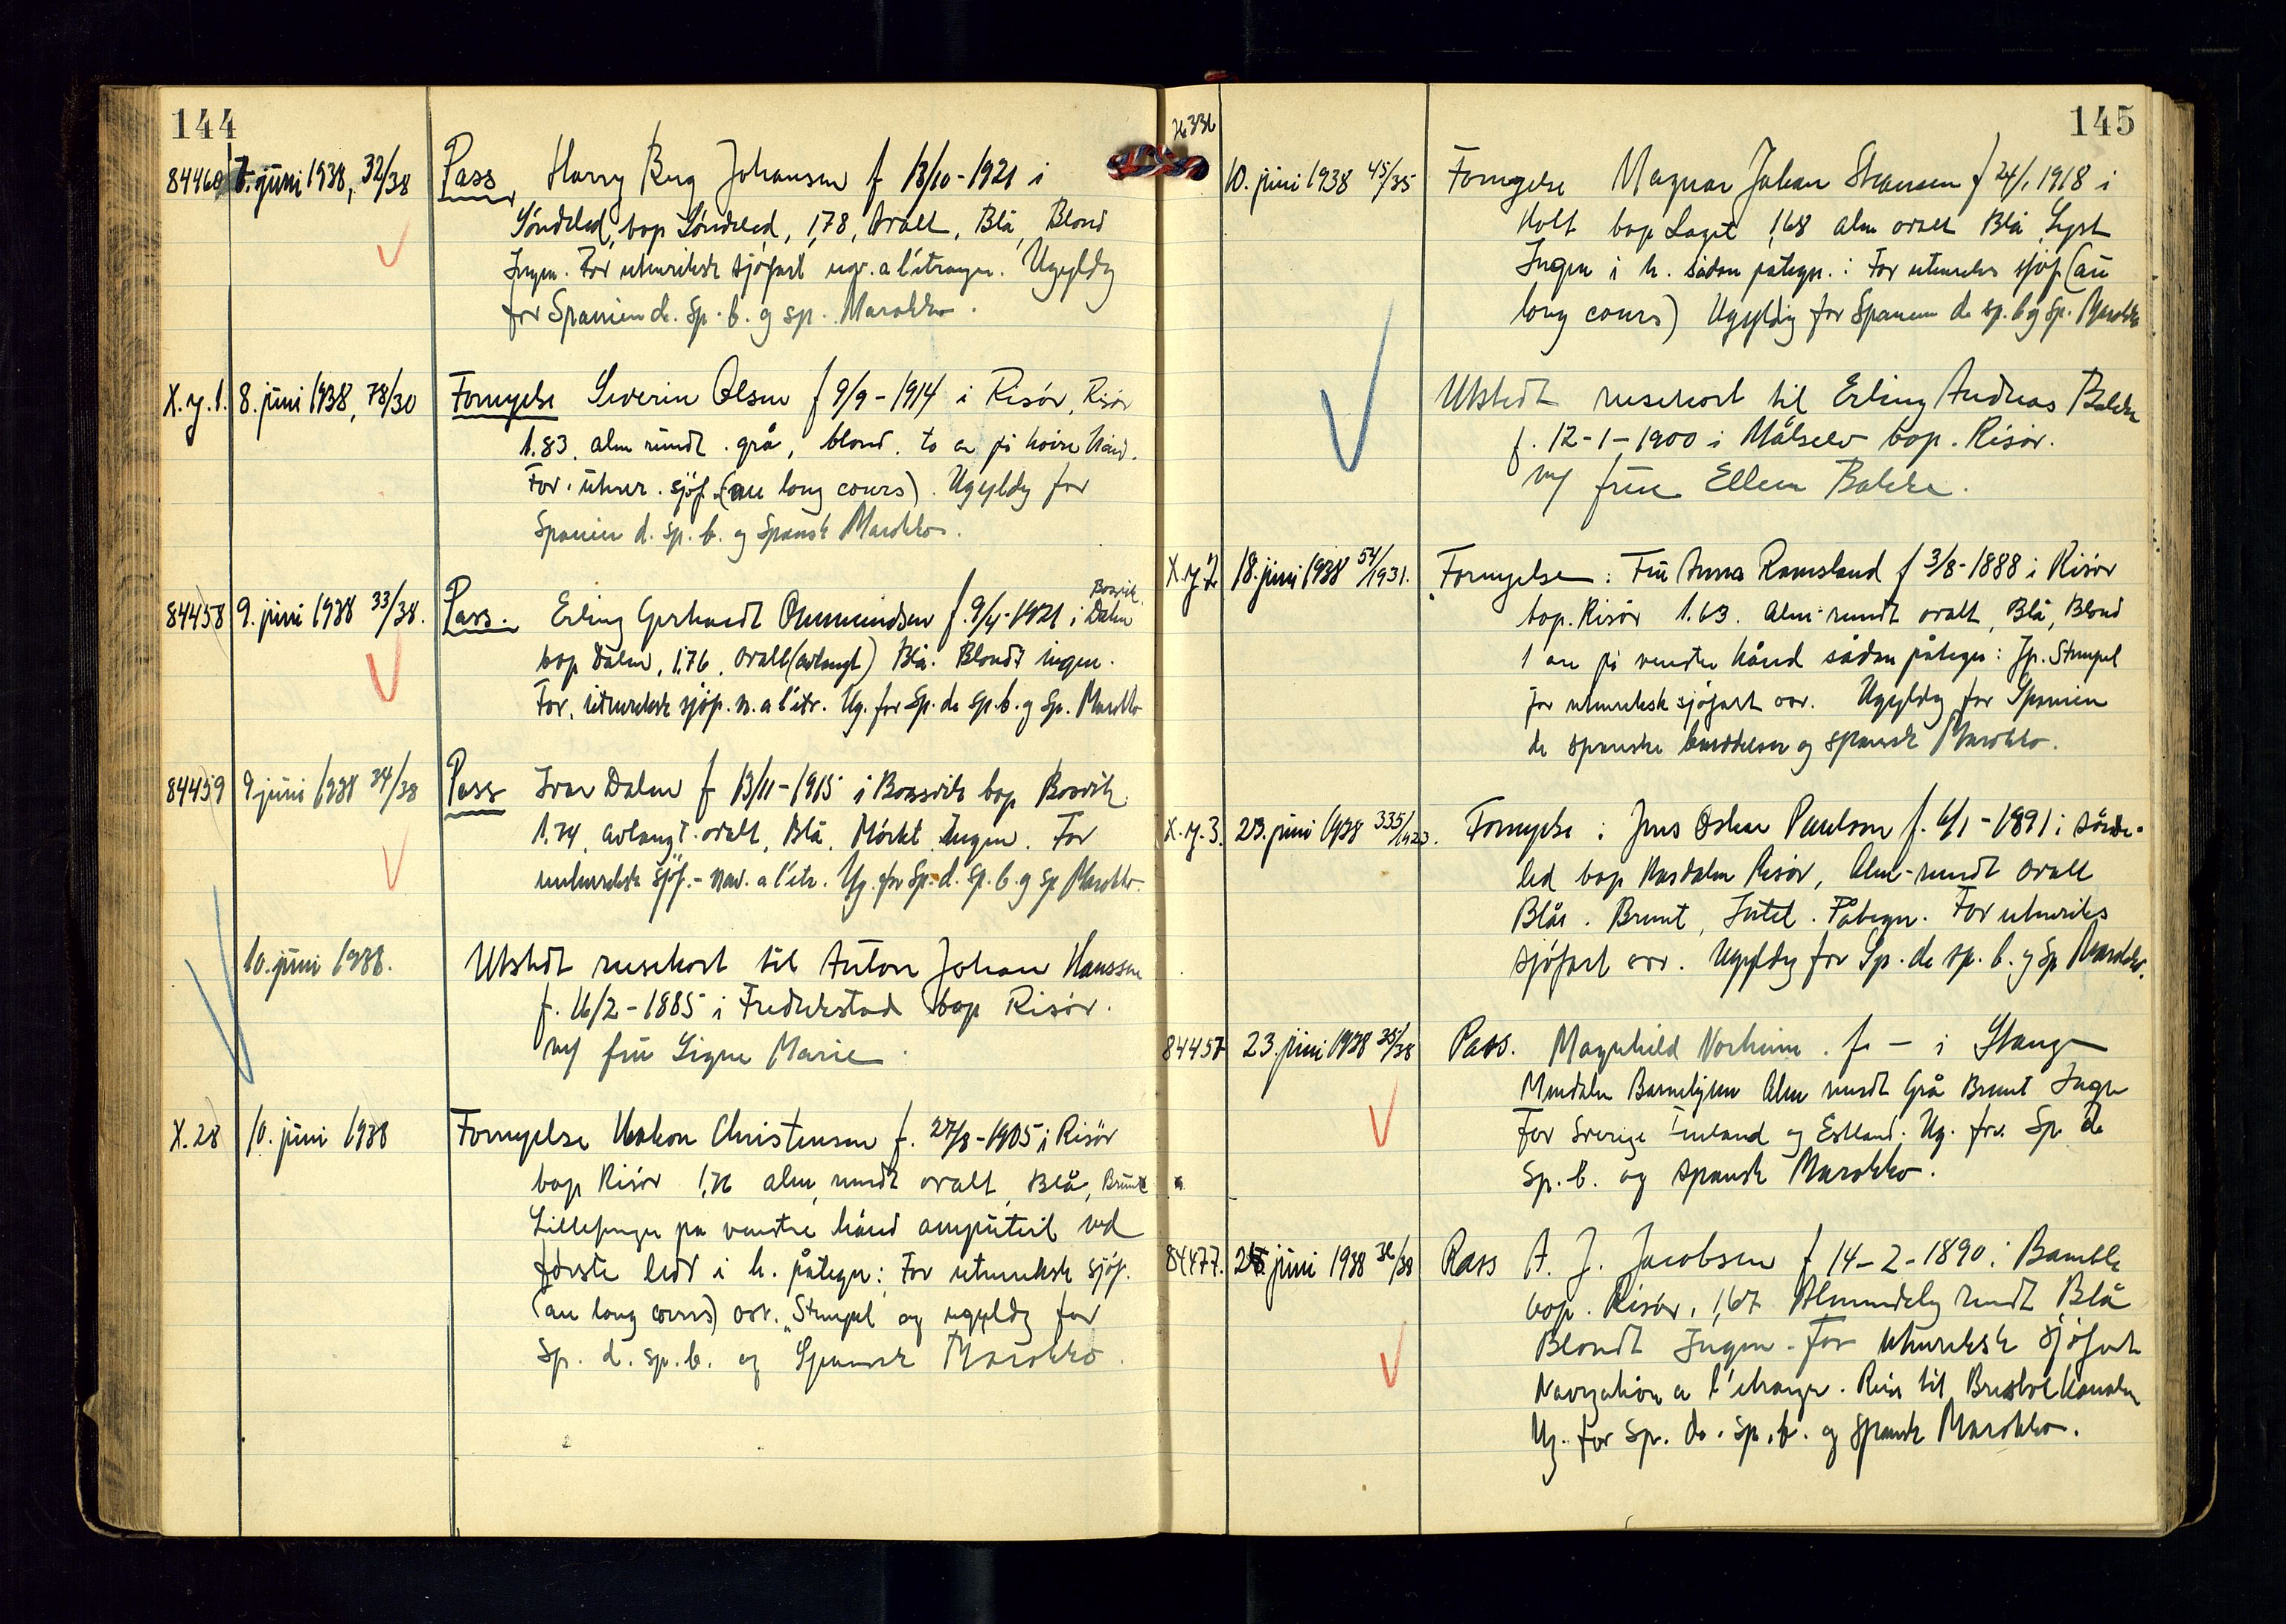 144
84460 7. juni 1938, 32/38 Pass Harry Berg Johansen f 13/10-1921 i
Söndeled, bop Söndeled, 1,78, Ovalt, Blå, Blond
Ingen. For utenriksk sjöfart nav. a l'étranger. Ugyldig
for Spanien d. sp. b. og sp. Marokko.
X.y.1. 8. juni 1938, 78/30 Fornyelse Severin Olsen f 9/9-1914 i Risör, Risör
1.83. alm rundt. grå, blond. to arr på höire hånd.
For utenr. sjöf. (au long cours). Ugyldig for
Spanien d. sp. b. og Spansk Marokko.
84458 9. juni 1938 33/38. Pass. Erling Gerhardt Ommundsen f. 9/4-1921 i Dalen
Bosvik
bop Dalen, 1,76, ovalt (avlangt) Blå. Blondt ingen.
For. utenriksk sjöf. n. a l'étr. Ug. for Sp. de sp. b. og Sp. Marokko
84459 9 juni 1938 34/38 Pass Ivar Dalen f 13/11-1915 i Boasvik bop Bosvik
1.74, avlangt. ovalt, Blå, Mörkt Ingen. For
utenriksk sjöf.- nav. a l'étr. Ug. for Sp. d. sp. b. og sp Marokko.
10. juni 1938. Utstedt reisekort til Anton Johan Hanssen
f. 16/2-1885 i Fredrikstad bop Risör.
m/ frue Signe Marie.
X.28 10. juni 1938 Fornyelse Haakon Christensen f. 27/8-1905 i Risör
bop Risör 1,76 alm, rundt ovalt, Blå, Brunt
Lillefinger på venstre hånd amputert ved
förste ledd i h. påtegn: For utenriksk sjöf.
(au long cours) osv. "Stempel og ugyldig for
Sp. d. sp. b. og Spansk Marokko.
145
10. juni 1938 45/35 Fornyelse Magnar Johan Steansen f 24/1 1918 i
Holt bop Laget 1,68 alm ovalt Blå Lyst
Ingen i h. sådan påtegn.: For utenriks sjöf (au
long cours) Ugyldig for Spanien de sp. b og Sp. Marokko
Utstedt reisekort til Erling Andreas Bakke
f. 12-1-1900 i Målselv bop. Risör.
m/ frue Ellen Bakke.
X.y.2 18. juni 1938 54/1931. Fornyelse: Fru Anna Ramsland f 3/8-1888 i Risör
bop. Risör 1.63. alm. rundt ovalt, Blå, Blond
1 arr på venstre hånd sådan påtegn: Jp. Stempel
for utenriksk sjöfart osv. Ugyldig for Spanien
de spanske besiddelser og spansk Marokko.
X.y.3. 23. juni 1938 335/1923. Fornyelse: Jens Oskar Paulsen f. 6/1-1891 i sönde-
led bop Hasdalen Risör, Alm-rundt ovalt
Blåe. Brunt, Intet. Påtegn. For utenriks
sjöfart osv. Ugyldig for Sp. de sp. b. og Sp Marokko.
84457 23. juni 1938 35/38 Pass. Magnhild Norheim. f. - i Stange
Mendalen Barnehjem Alm rundt Grå Brunt Ingen
For Sverige Finland og Estland. Ug. for Sp de
sp. b. og spansk Marokko.
84477. 25. juni 1938 36/38 Pass A. J. Jacobsen f 14-2-1890 i Bamble
bop. Risör, 1,67 Almindelig rundt Blå
Blondt Ingen. For utenriksk sjöfart
Navigation a l'étranger. Reise til Bristol kanalen
Ug. for Sp. de. sp. b. og spansk Marokko.